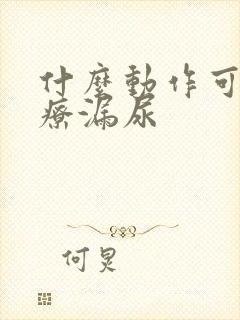 什麼動作可
療漏尿
何炅